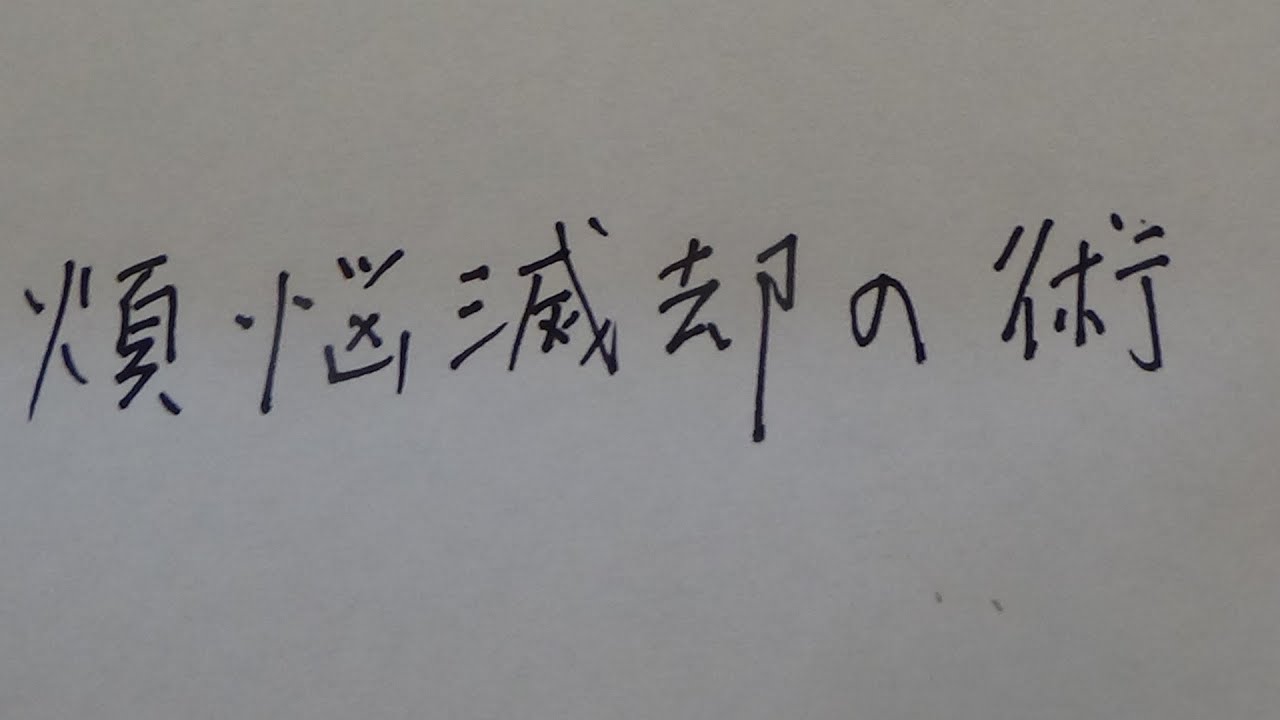 煩悩滅却の術